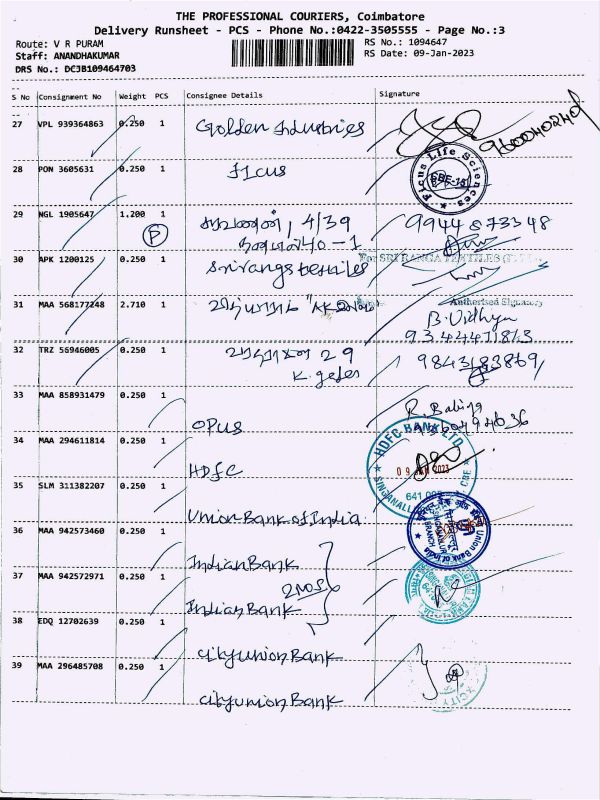 THE PROFESSIONAL COURIERS, Coimbatore
Delivery Runsheet - PCS - Phone No.:0422-3505555 - Page No.:3
Route: V R PURAM
RS No.: 1094647
Staff: ANANDHAKUMAR
RS Date: 09-Jan-2023
DRS No.: DCJB109464703
S No Consignment No Weight PCS Consignee Details Signature
27 VPL 939364863 0.250 1 Golden Industries 9600402409
28 PON 3605631 0.250 1 Ficus
Ficus Life Sciences
CBE-15
29 NGL 1905647 1.200 1 4/39 9944873348
P
30 APK 1200125 0.250 1 Srirangs textiles
For SRI RANGA TEXTILES
Authorised Signatory
31 MAA 568177248 2.710 1 B. Vidhya
9344471813
32 TRZ 56946005 0.250 1 29 9843183869
33 MAA 858931479 0.250 1
R. Babitga
OPUS
34 MAA 294611814 0.250 1
HDFC BANK LTD
HDFC
09 JAN 2023
35 SLM 311382207 0.250 1
641 005
Union Bank of India
Union Bank of India
36 MAA 942573460 0.250 1
Indian Bank
37 MAA 942572971 0.250 1
2nos
Indian Bank
38 EDQ 12702639 0.250 1
City union Bank
39 MAA 296485708 0.250 1
City union Bank